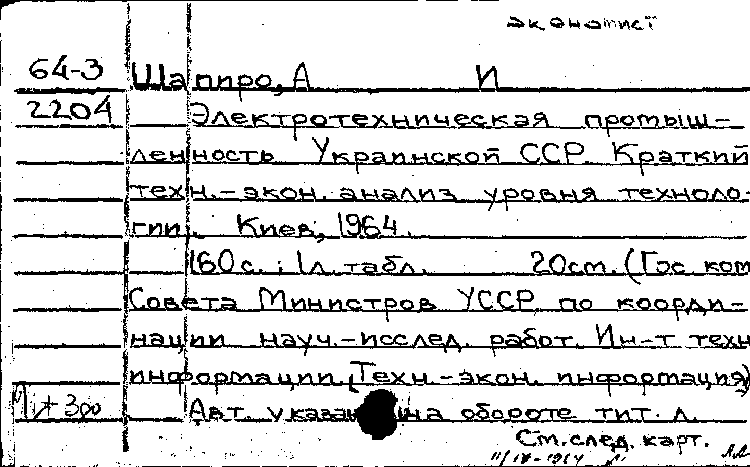 экономист
64-3 Шапиро, А И
2204 Электротехническая промыш-
ленность Украинской ССР. Краткий
техн.-экон. анализ уровня техноло-
гии. Киев, 1964.
160 с.; 1 л. табл. 20 см. (Гос. ком
Совета Министров УССР по коорди-
нации науч.-исслед. работ. Ин-т техн
информации. (Техн.-экон. информация)
300 Авт. указан на обороте тит. л.
См. след. карт.